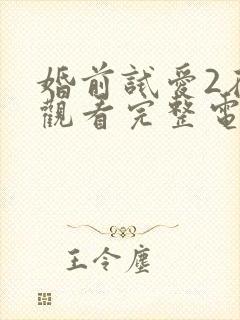 婚前試愛2在
觀看完整電
王令塵